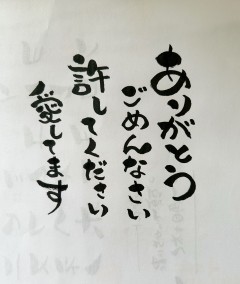 ありがとう
ごめんなさい
許してください
愛してます